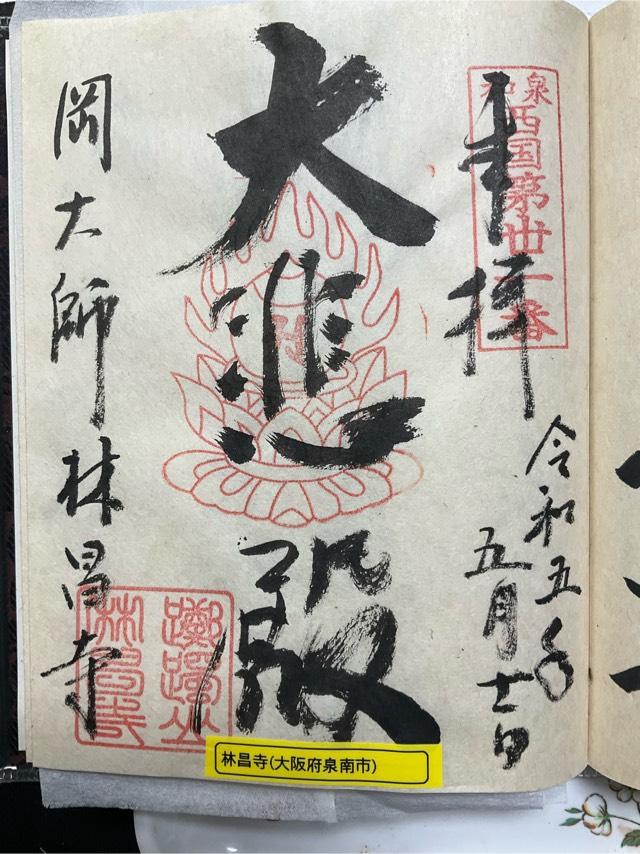 奉拝
和泉
西国第卅一番
令和五年
五月十一日
大悲殿
岡大師林昌寺
躑躅山
林昌寺
林昌寺(大阪府泉南市)